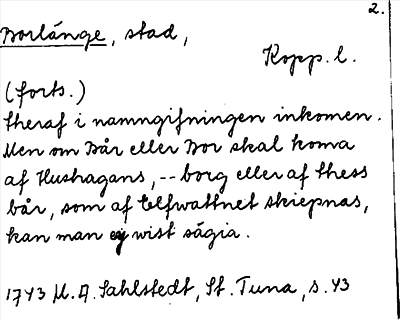 2.
Borlänge, stad,
Kopp. l.
(forts.)
theraf i namngifningen inkomen.
Men om Bår eller Bor skal koma
af Hushagans, -- borg eller af thess
bår, som af Elfwattnet skiepnas,
kan man ey wist sägia.
1743 M. A. Sahlstedt, St. Tuna, s. 43